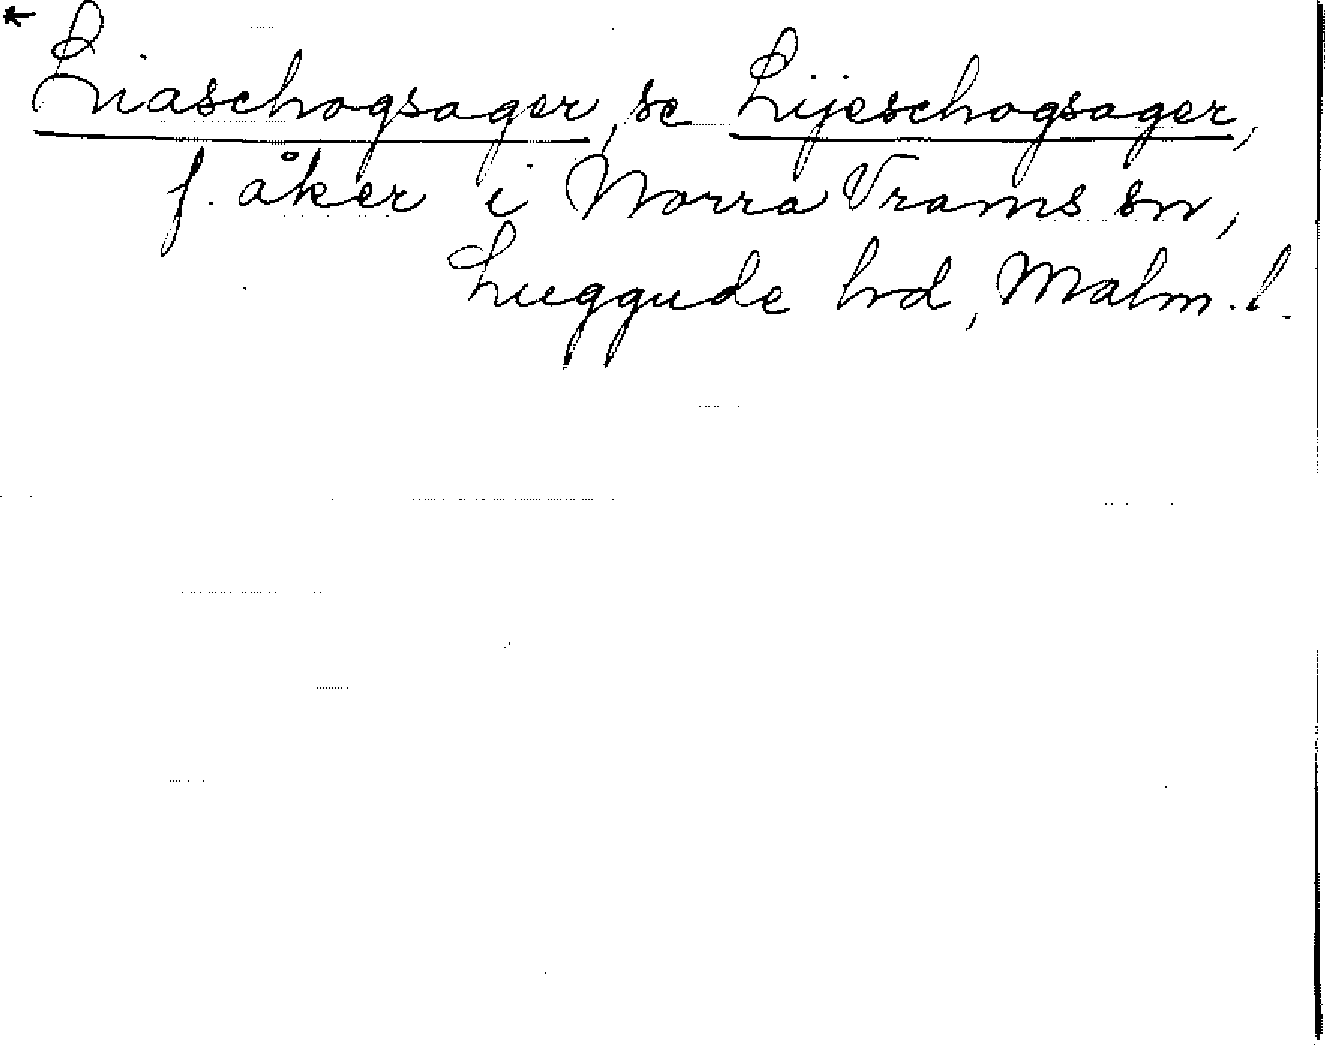 * Liaschogsager, se Lijeschogsager,
f. åker i Norra Vrams sn,
Luggude hd, Malm. l.